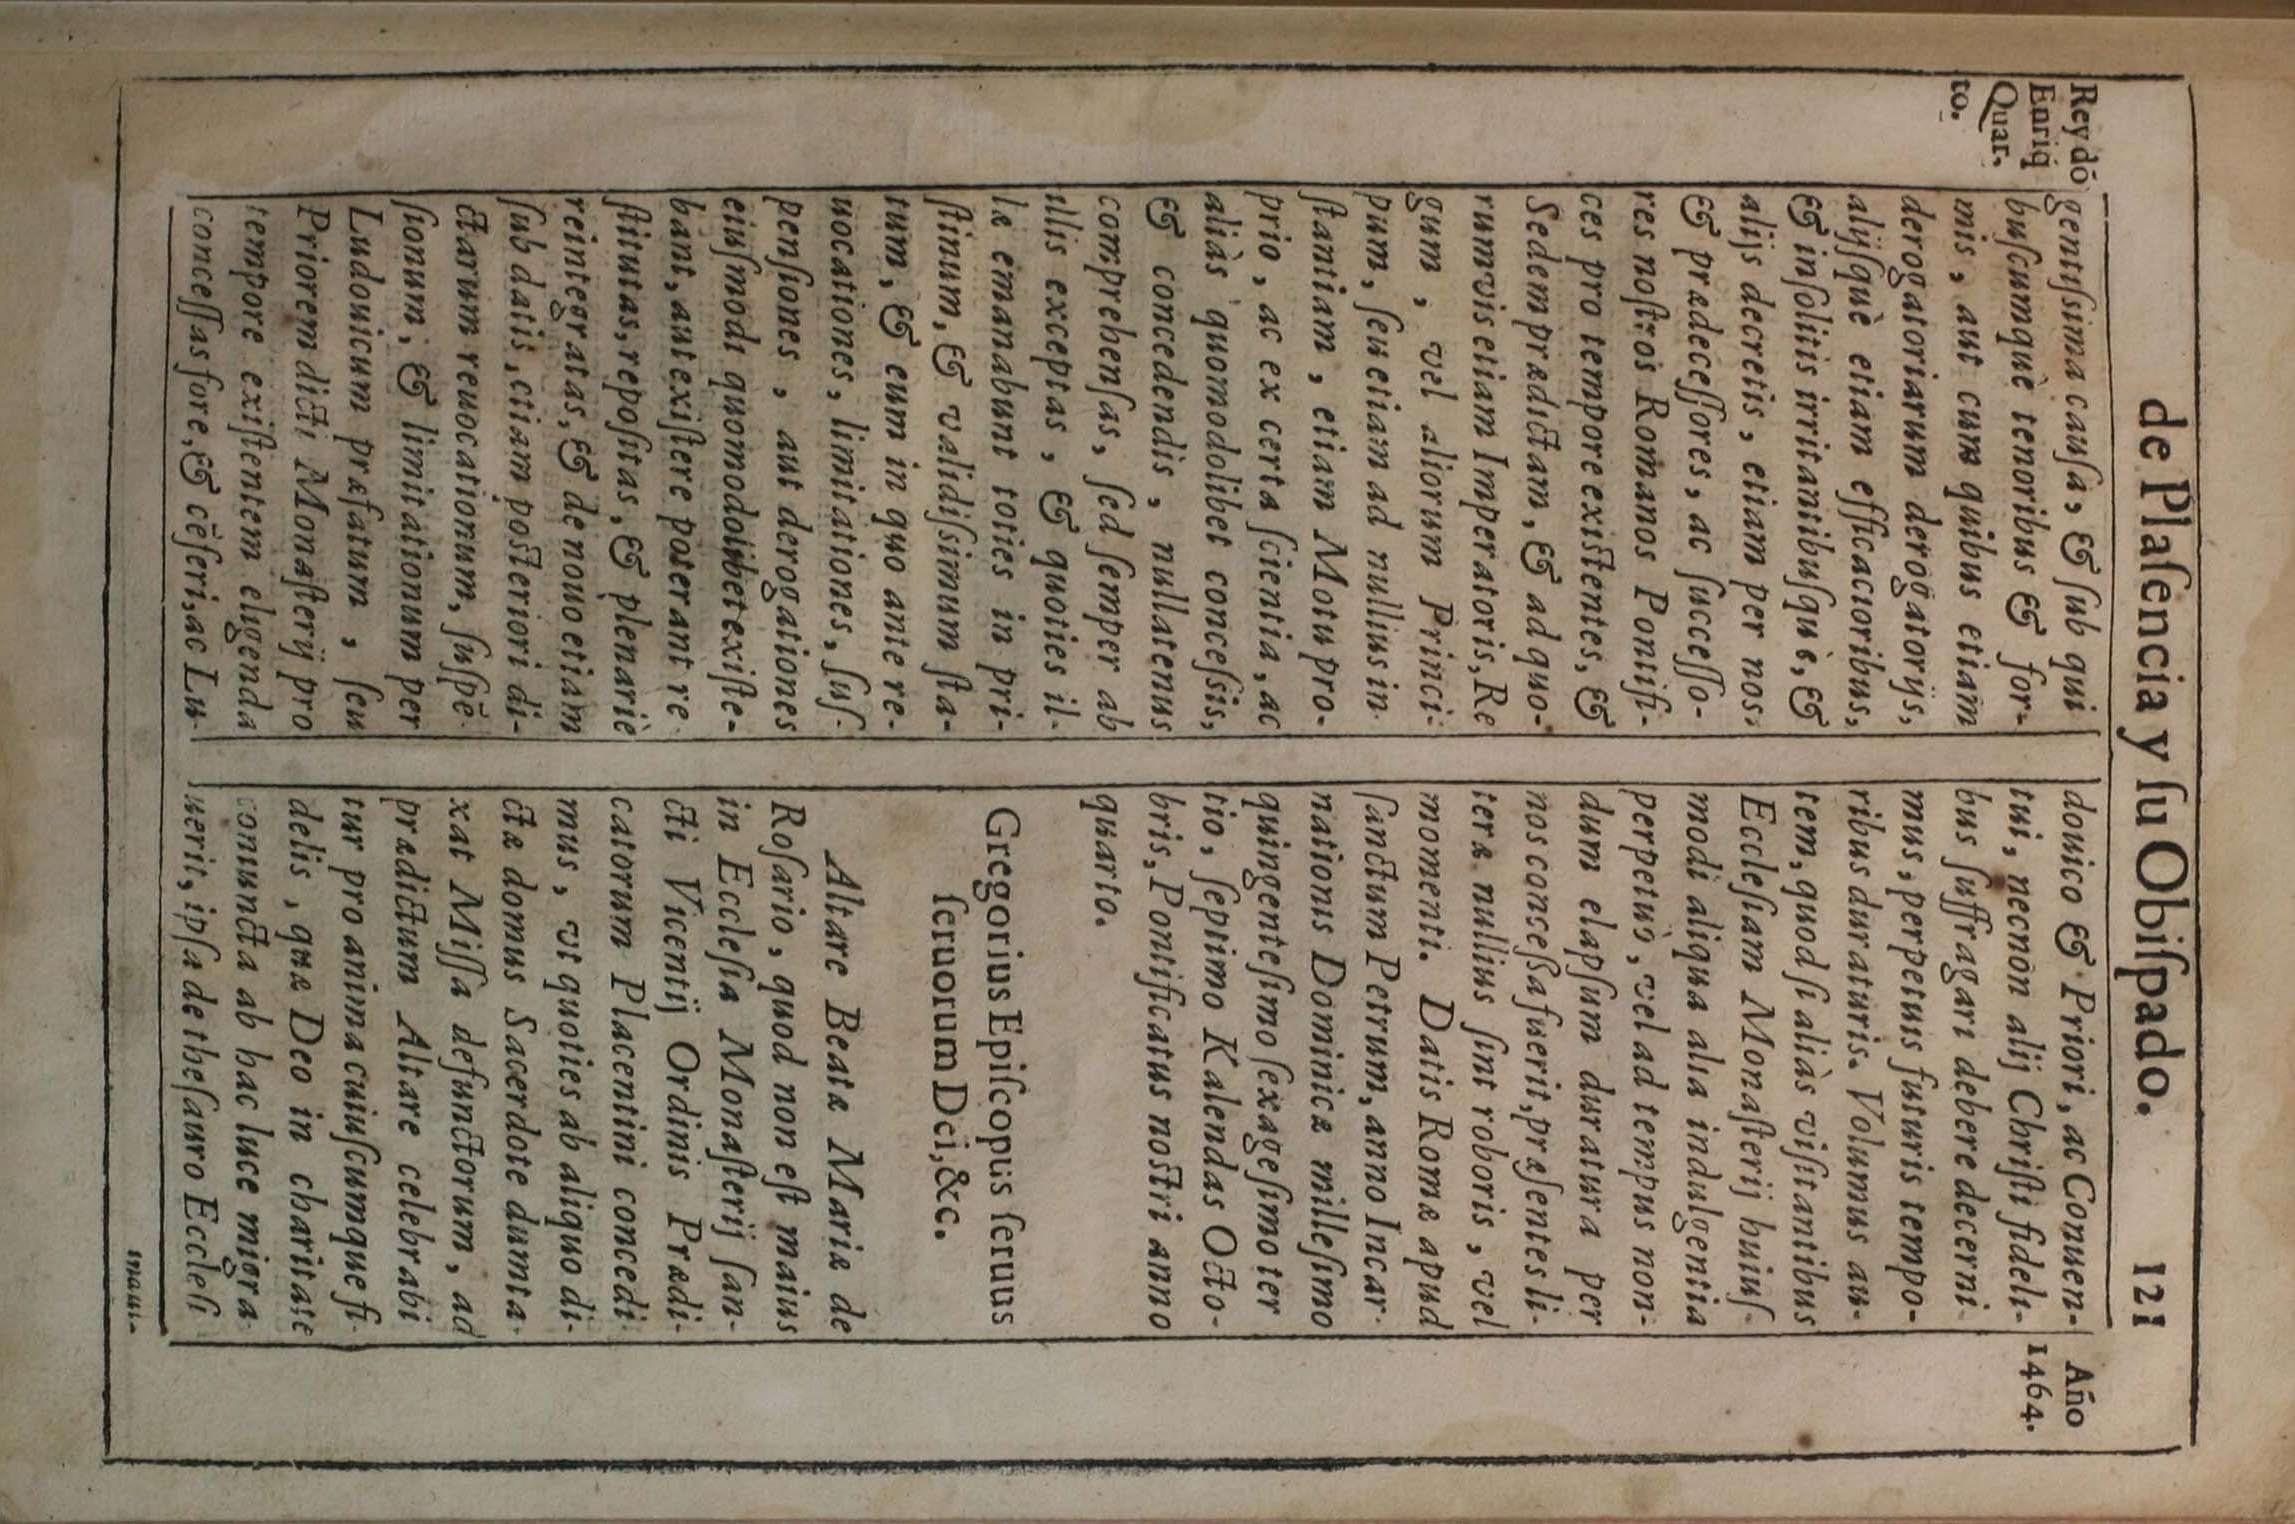 de Plaſencia y ſu Obiſpado. 121
Rey dõ
Enriq̃
Quar.
to.
gentiſsima cauſa, & ſub qui
buſcumquè tenoribus & for-
mis, aut cum quibus etiam
derogatoriarum derogatorijs,
alijſquè etiam efficacioribus,
& inſolitis irritantibuſquè, &
alijs decretis, etiam per nos
& prædeceſſores, ac ſucceſſo-
res noſtros Romanos Pontifi-
ces pro tempore exiſtentes, &
Sedem prædictam, & ad quo-
rumvis etiam Imperatoris, Re
gum, vel aliorum Princi-
pum, ſeu etiam ad nullius in-
ſtantiam, etiam Motu pro-
prio, ac ex certa ſcientia, ac
aliàs quomodolibet conceſsis,
& concedendis, nullatenus
comprehenſas, ſed ſemper ab
illis exceptas, & quoties il-
læ emanabunt toties in pri-
ſtinum, & validiſsimum ſta-
tum, & eum in quo ante re-
uocationes, limitationes, ſuſ-
penſiones, aut derogationes
eiuſmodi quomodolibet exiſte-
bant, aut exiſtere poterant re
ſtitutas, repoſitas, & plenariè
reintegratas, & de nouo etiam
ſub datis, etiam poſteriori di-
ctarum reuocationum, ſuſpẽ-
ſionum, & limitationum per
Ludouicum præfatum, ſeu
Priorem dicti Monaſterij pro
tempore exiſtentem eligenda
conceſſas fore, & cẽſeri, ac Lu-
Año
1464.
douico & Priori, ac Conuen-
tui, necnon alij Chriſti fideli-
bus ſuffragari debere decerni-
mus, perpetuis futuris tempo-
ribus duraturis. Volumus au-
tem, quod ſi aliàs viſitantibus
Eccleſiam Monaſterij huiuſ-
modi aliqua alia indulgentia
perpetuò, vel ad tempus non-
dum elapſum duratura per
nos conceſſa fuerit, præſentes li-
teræ nullius ſint roboris, vel
momenti. Datis Romæ apud
ſanctum Petrum, anno Incar-
nationis Dominicæ milleſimo
quingenteſimo ſexageſimo ter
tio, ſeptimo Kalendas Octo-
bris, Pontificatus noſtri anno
quarto.
Gregorius Epiſcopus ſeruus
ſeruorum Dei, &c.
Altare Beatæ Mariæ de
Roſario, quod non eſt maius
in Eccleſia Monaſterij ſan-
cti Vicentij Ordinis Prædi-
catorum Placentini concedi-
mus, vt quoties ab aliquo di-
ctæ domus Sacerdote dumta-
xat Miſſa defunctorum, ad
prædictum Altare celebrabi
tur pro anima cuiuſcumque fi-
delis, quæ Deo in charitate
coniuncta ab hac luce migra-
uerit, ipſa de theſauro Eccleſi
maui-